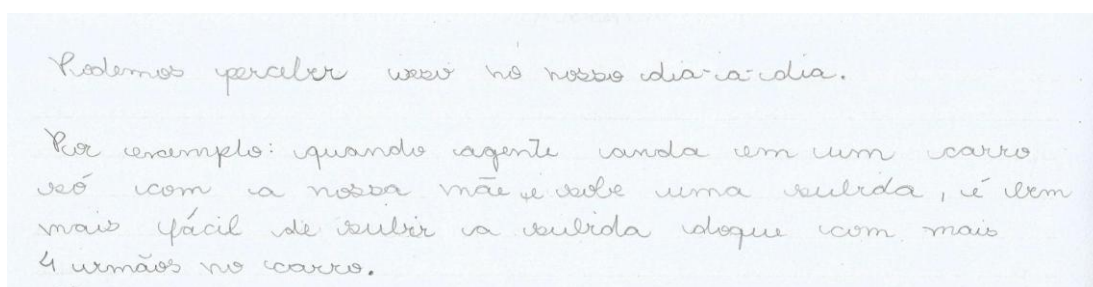 Podemos perceber isso no nosso dia-a-dia.
Por exemplo: quando agente anda em um carro
só com a nossa mãe e sobe uma subida, é bem
mais fácil de subir a subida doque com mais
4 irmãos no carro.